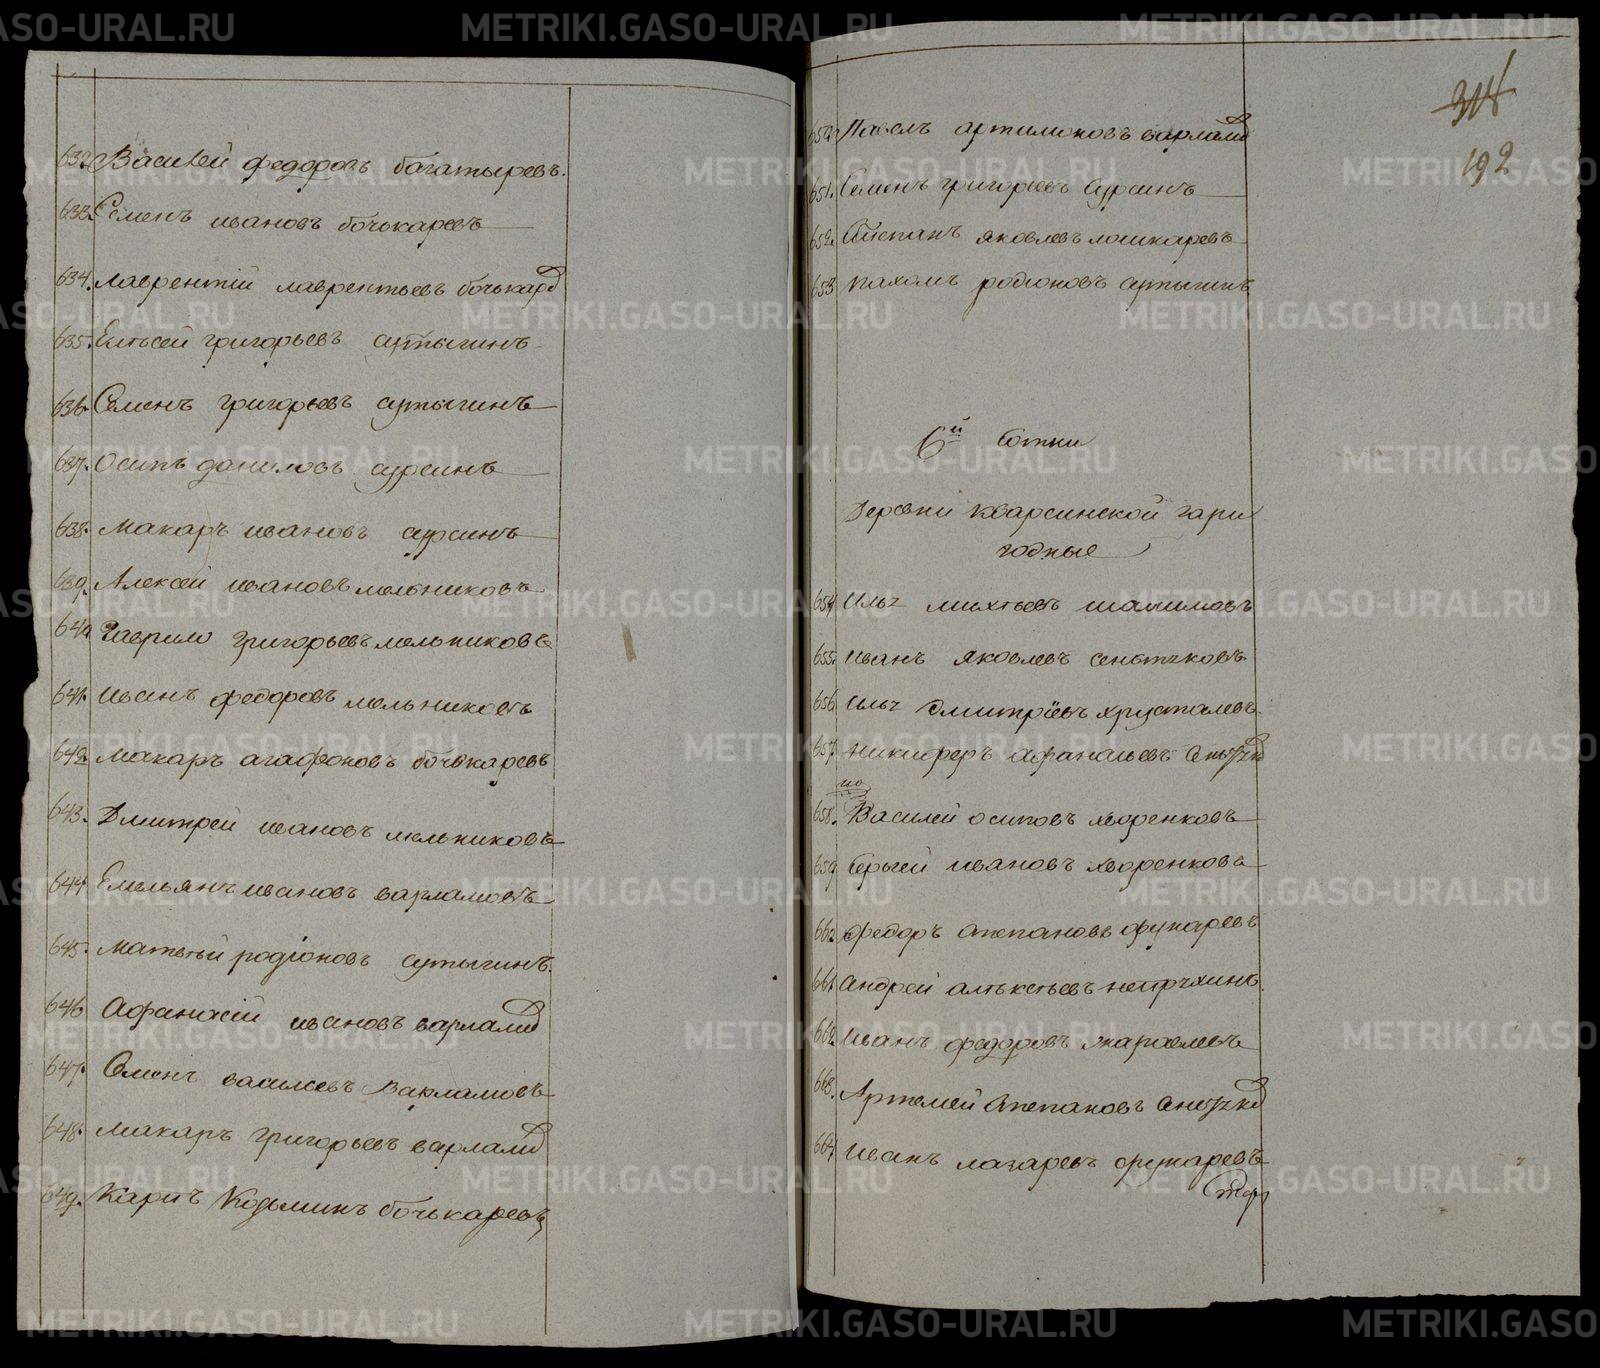 METRIKI.GASO-URAL.RU
632. Василей федоровъ богатыревъ.
633. Семенъ ивановъ бочькаревъ
634. лаврентій лаврентьевъ бочькарв
635. Елисей григорьевъ сутыгинъ
636. Семенъ григорьевъ сутыгинъ
637. Осипъ даниловъ сурсинъ
638. макаръ ивановъ сурсинъ
639. Алексей ивановъ мельниковъ
640 Гаврило григорьевъ мельниковъ
641. иванъ федоровъ мельниковъ
642. макаръ агафоновъ бочькаревъ
643. Дмитрей ивановъ мельниковъ
644 Емельянъ ивановъ варламовъ
645. матвей родіоновъ сутыгинъ.
646 Афанасій ивановъ варламв
647. Семенъ васильевъ варламовъ
648. макаръ григорьевъ варламв
649. Карпъ Козьминъ бочькаревъ
314
192
650. Павелъ артамоновъ варламв
651. Семенъ григорьевъ сурсинъ
652. Степанъ яковлевъ лошкаревъ
653 пахомъ родіоновъ сутыгинъ
6й сотни
Деревни кварсинской гари
годные
654 илья
655. иванъ яковлевъ
656 илья Дмитріевъ хрусталевъ
657 никифоръ афанасьевъ
658. Василей осиповъ яворенковъ
659 Сергей ивановъ яворенковъ
660 федоръ степановъ фунаревъ
661 андрей алексеевъ
662. иванъ федоровъ
663. Артемей степановъ
664 иванъ лазаревъ фунаревъ